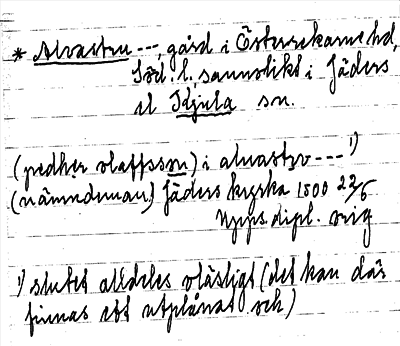 * Alvastru ---, gård i Österrekarne hd,
Söd. l. sannolikt i Jäders
el Kjula sn.
(pedher olaffsson) i aluastro --- 1)
(nämndeman) Jäders kyrka 1500 22/6
Nyps dipl. orig
1) slutet alldeles oläsligt (det kan där
finnas ett utplånat och)